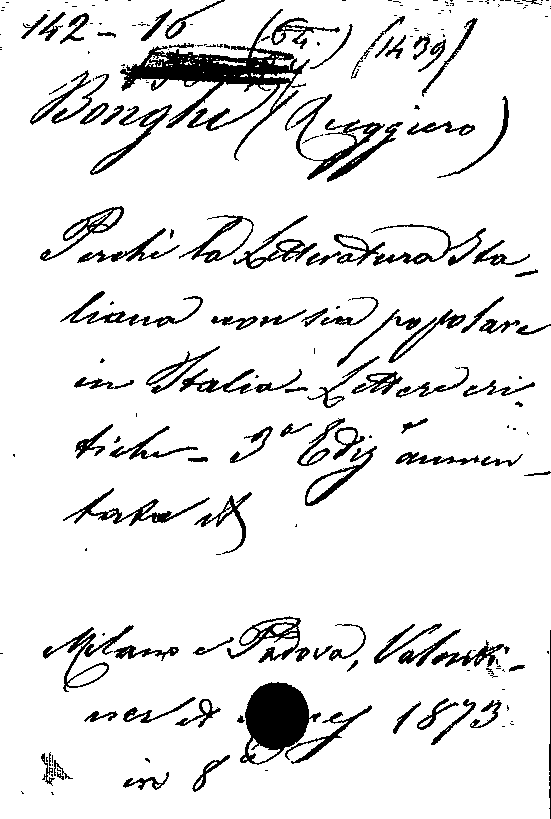 142 - 16 (64.) (1439)
Bonghi (Ruggiero)
Perchè la Letteratura Ita-
liana non sia popolare
in Italia - Lettere cri-
tiche - 3ª Ediz aumen-
tata
Milano e Padova, Valenti-
ner et 1873
in 8º